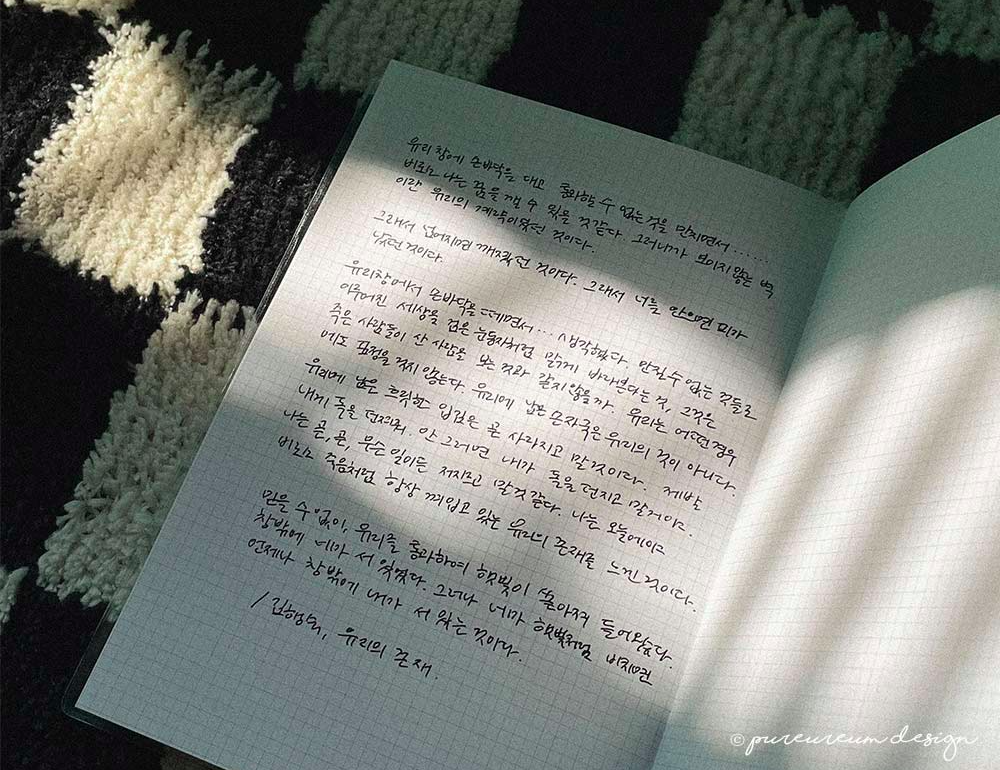 유리창에 손바닥을 대고 통과할 수 없는 것을 만지면서......
비로소 나는 꿈을 깰 수 있을 것 같다. 그러니까 보이지 않는 벽
이란 유리의 계략이었던 것이다.
그래서 넘어지면 깨졌던 것이다. 그래서 너를 안으면 피가
났던 것이다.
유리창에서 손바닥을 떼면서... 생각했다. 만질 수 없는 것들로
이루어진 세상을 검은 눈동자처럼 맑게 바라본다는 것, 그것은
죽은 사람들이 산 사람을 보는 것과 같지 않을까. 유리는 어떤 경우
에도 표정을 짓지 않는다. 유리에 남은 손자국은 유리의 것이 아니다.
유리에 남은 흐릿한 입김은 곧 사라지고 말 것이다. 제발
내게 돌을 던져줘. 안 그러면 내가 돌을 던지고 말거야.
나는 곧, 곧, 무슨 일이든 저지르고 말 것 같다. 나는 오늘에야
비로소 죽음처럼 항상 껴입고 있는 유리의 존재를 느낀 것이다.
믿을 수 없이, 유리를 통과하여 햇빛이 쏟아져 들어왔습니다.
창밖에 네가 서 있었다. 그러나 네가 햇빛처럼 비치면
언제나 창밖에 내가 서 있는 것이다.
/ 김행숙, 유리의 존재.
© pureureum design